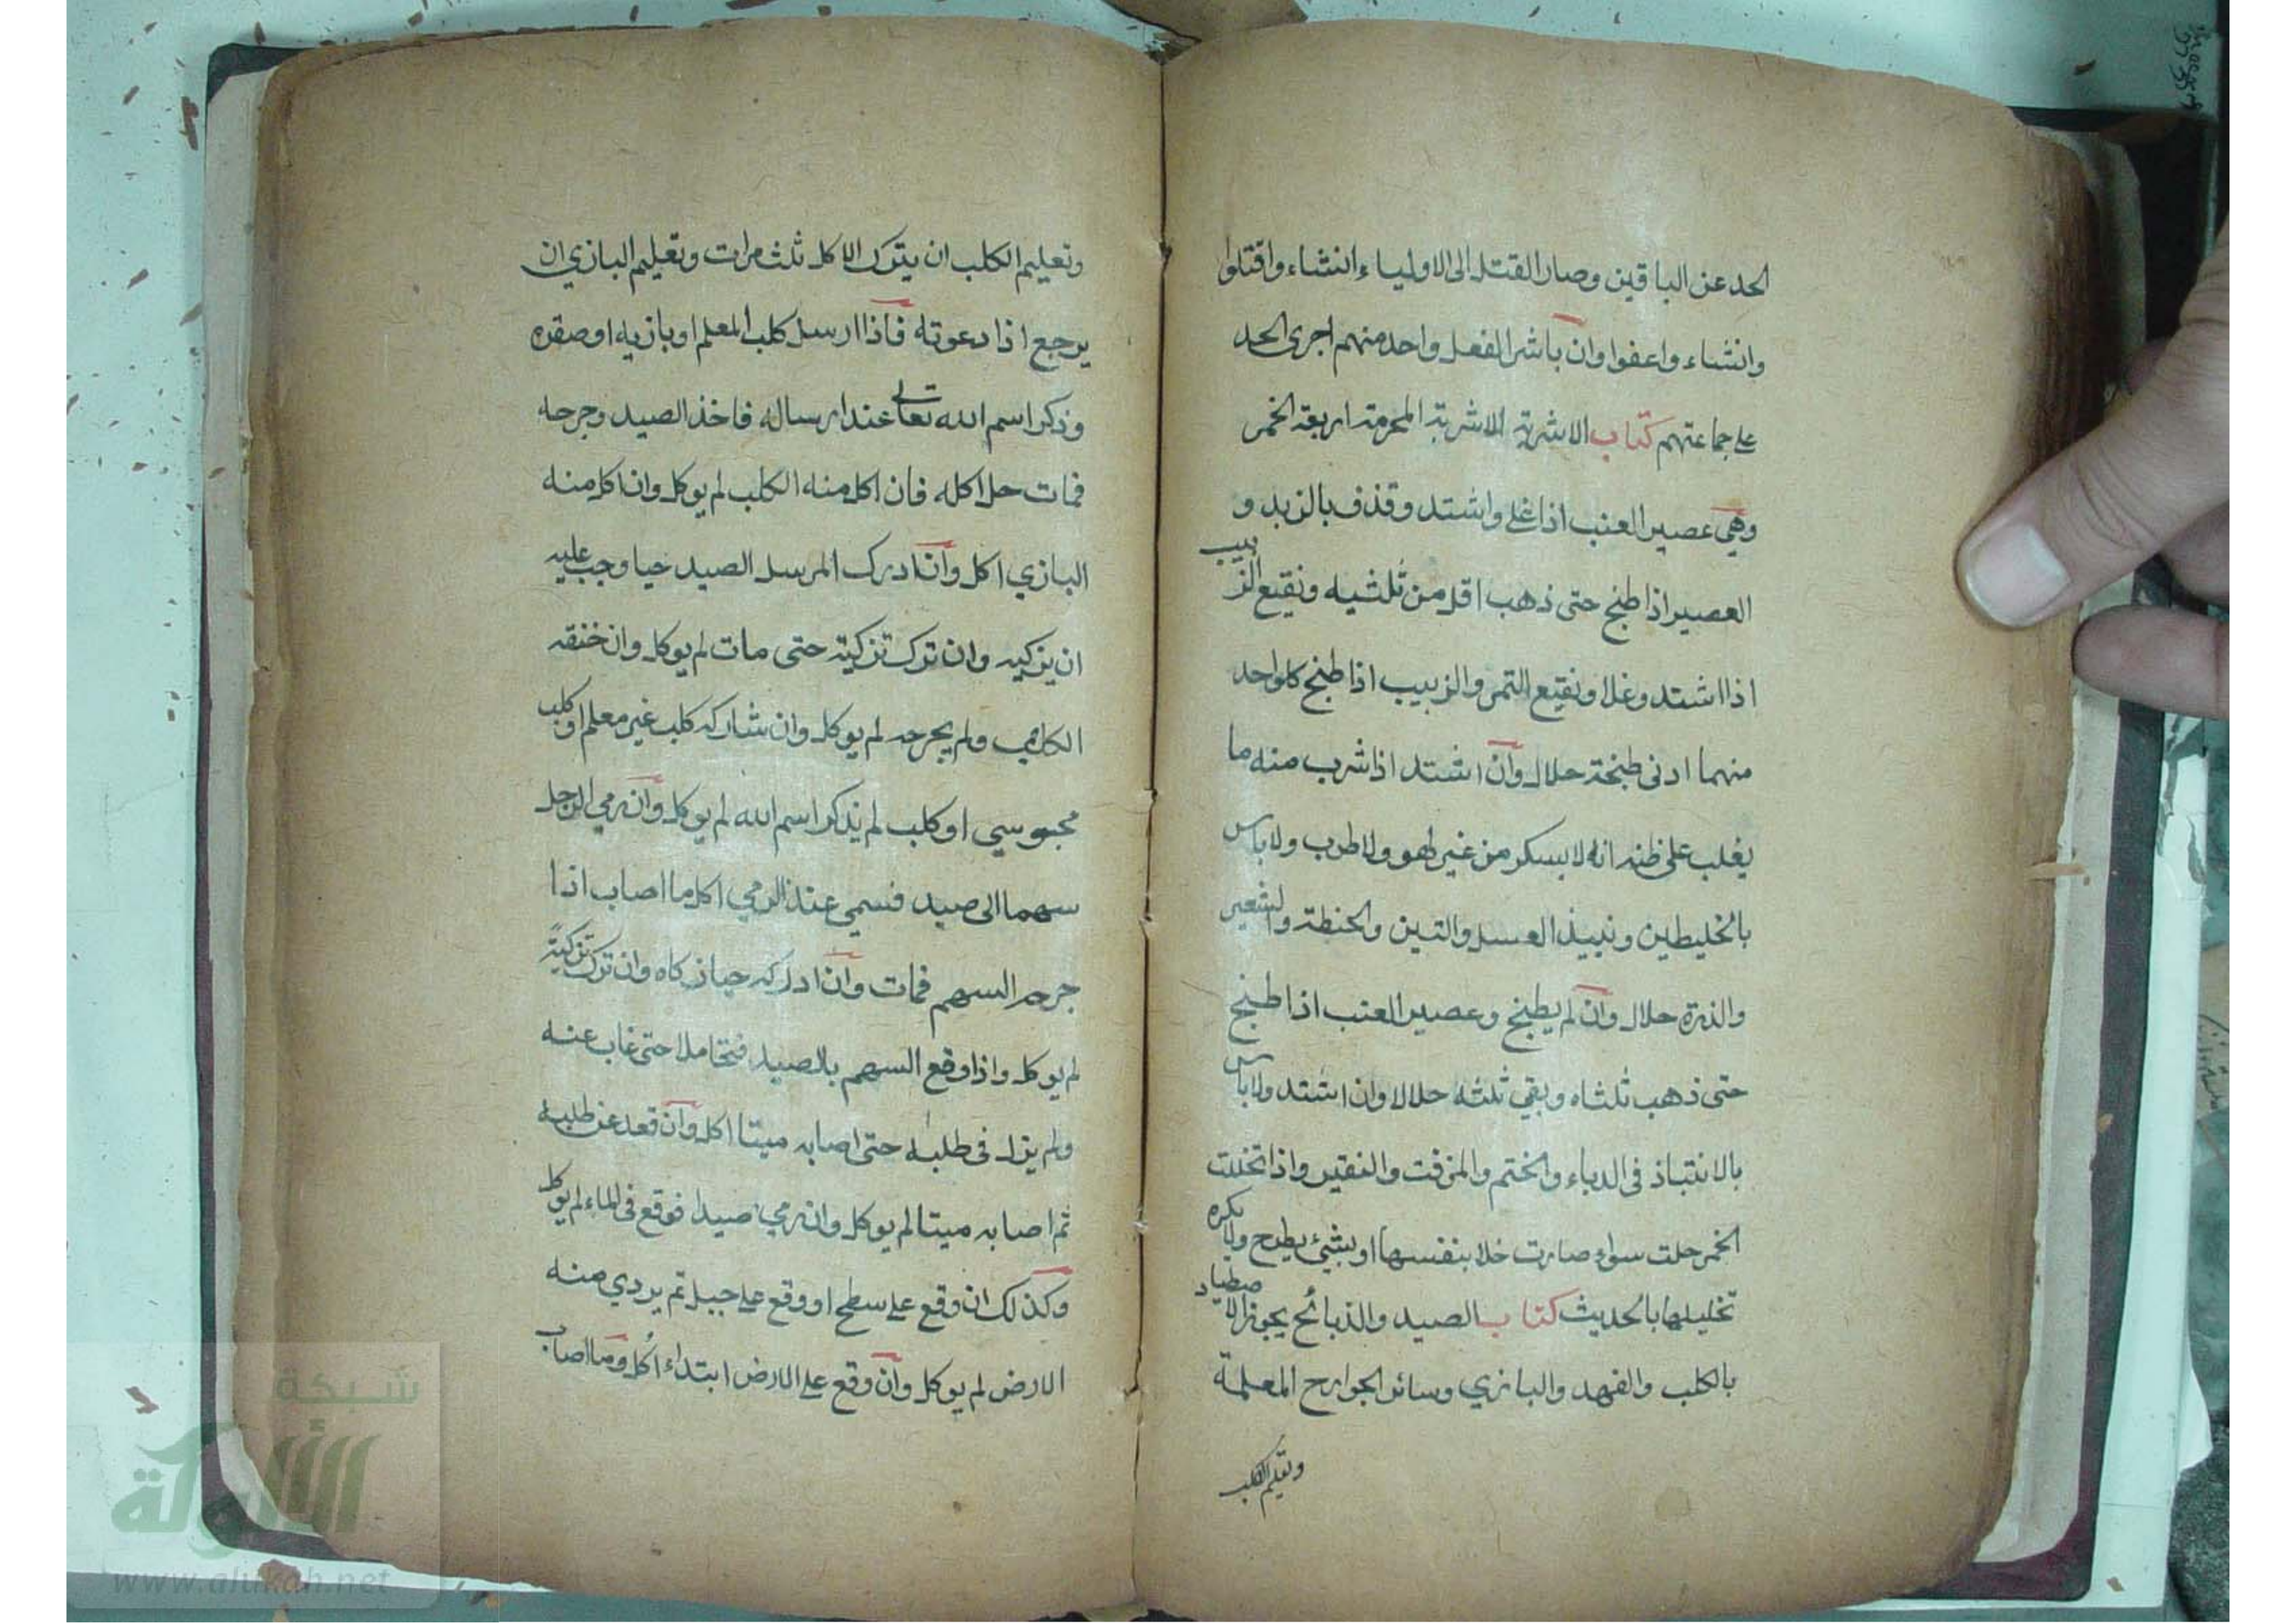 الحد عن الباقين وصار القتل الى الاولياء انشاء واقتلوا
وانشاء واعفوا وان باشر الفعل واحد منهم اجرى الحد
على جماعتهم كتاب الاشربة الاشربة المحرمة اربعة الخمر
وهي عصير العنب اذا غلى واشتد وقذف بالزبد و
العصير اذا طبخ حتى ذهب اقل من ثلثيه ونقيع الزبيب
اذا اشتد وغلا ونقيع التمر والزبيب اذا طبخ كلواحد
منهما ادنى طبخة حلال وان اشتد اذا شرب منه ما
يغلب على ظنه انه لا يسكر من غير لهو ولا طرب ولا باس
بالخليطين ونبيذ العسل والتين والحنطة والشعير
والذرة حلال وان لم يطبخ وعصير العنب اذا طبخ
حتى ذهب ثلثاه وبقي ثلثه حلالا وان اشتد ولا باس
بالانتباذ في الدباء والختم والمزفت والنقير واذا تخللت
الخمر حلت سواء صارت خلا بنفسها او بشيء يطرح ولا يكره
تخليلها بالحديث كتاب الصيد والذبائح يجوز الاصطياد
بالكلب والفهد والبازي وسائر الجوارح المعلمة
وتعليم الكلب
وتعليم الكلب ان يترك الاكل ثلث مرات وتعليم البازي ان
يرجع اذا دعوته فاذا ارسل كلب المعلم او بازيه او صقره
وذكر اسم الله تعالى عند ارساله فاخذ الصيد وجرحه
فمات حل اكله فان اكل منه الكلب لم يوكل وان اكل منه
البازي اكل وان ادرك المرسل الصيد حيا وجب عليه
ان يزكيه وان ترك تزكيته حتى مات لم يوكل وان خنقه
الكلب ولم يجرحه لم يوكل وان شاركه كلب غير معلم او كلب
مجبوسي او كلب لم يذكر اسم الله لم يوكل وان رمي الرجل
سهما الى صيد فسمي عند الرمي اكل ما اصاب اذا
جرحه السهم فمات وان ادركه حيا زكاه وان ترك تزكيته
لم يوكل واذا وقع السهم بالصيد فتحاملا حتى غاب عنه
ولم يزل في طلبه حتى اصابه ميتا اكل وان قعد عن طلبه
ثم اصابه ميتا لم يوكل وان رمي صيدا فوقع في الماء لم يوكل
وكذلك ان وقع على سطح او وقع على جبل ثم يردي منه
الارض لم يوكل وان وقع على الارض ابتداء اكل وما اصاب
شبكة
الألوكة
www.alukah.net